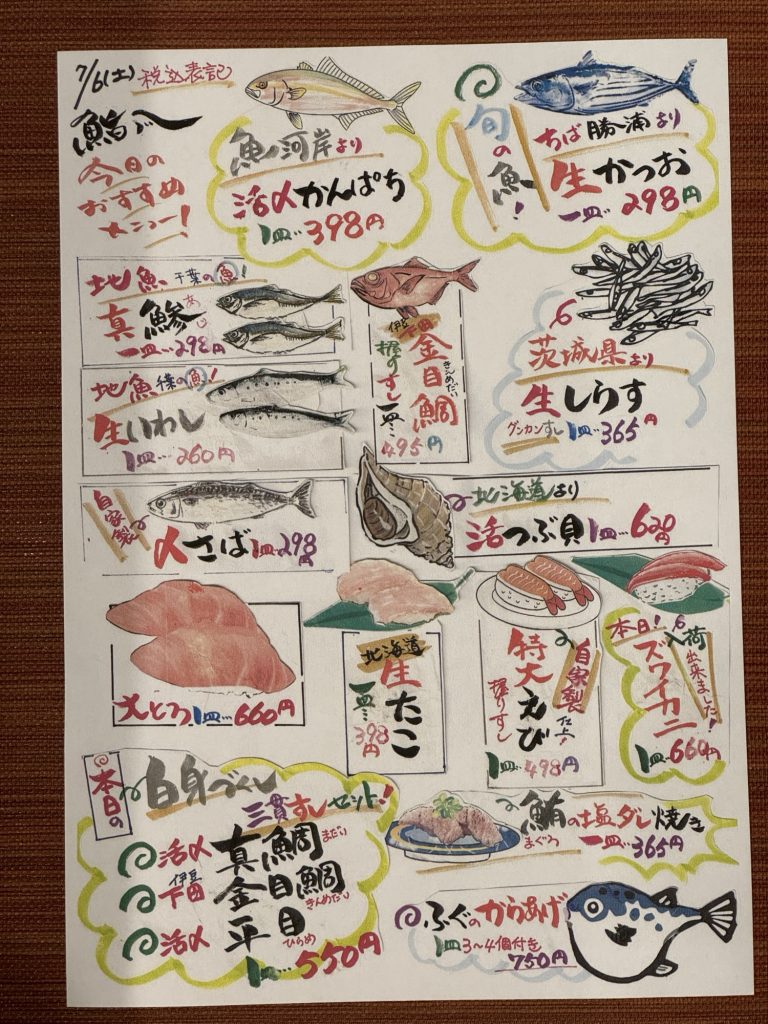 7/6(土) 税込表記
今日の
おすすめ
メニュー!
魚河岸より
活〆かんぱち
1皿…398円
旬の魚!
ちば勝浦より
生かつお
一皿…298円
地魚 千葉の魚!
真鯵 あじ
一皿…298円
地魚 千葉の魚!
生いわし
1皿…260円
金目鯛 きんめだい
握りすし 一皿…495円
茨城県より
生しらす
グンカンすし 1皿…365円
自家製
〆さば 1皿…298円
北海道より
活つぶ貝 1皿…620円
大とろ 1皿…660円
北海道
生たこ
一皿…398円
特大えび
握りすし
自家製 仕上!
1皿…498円
本日!入荷出来ました!
ズワイカニ
1皿…660円
本日の
白身づくし
三貫すしセット!
活〆 真鯛 まだい
伊豆下田 金目鯛 きんめだい
活〆 平目 ひらめ
1皿…550円
鮪の塩ダレ焼き
まぐろ 一皿…365円
ふぐのからあげ
1皿3〜4個付き
750円